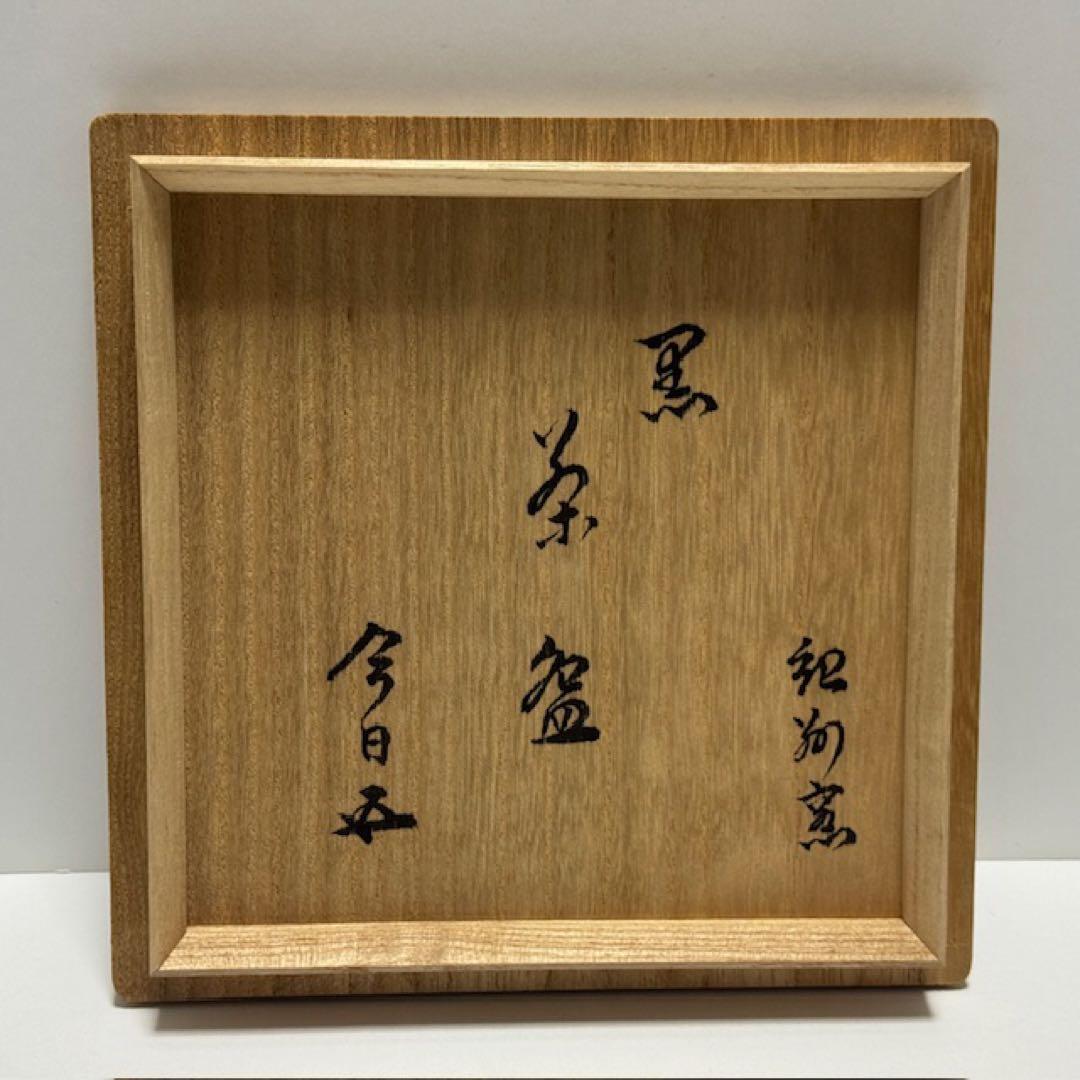 紀州窯
黒
茶盌
今日